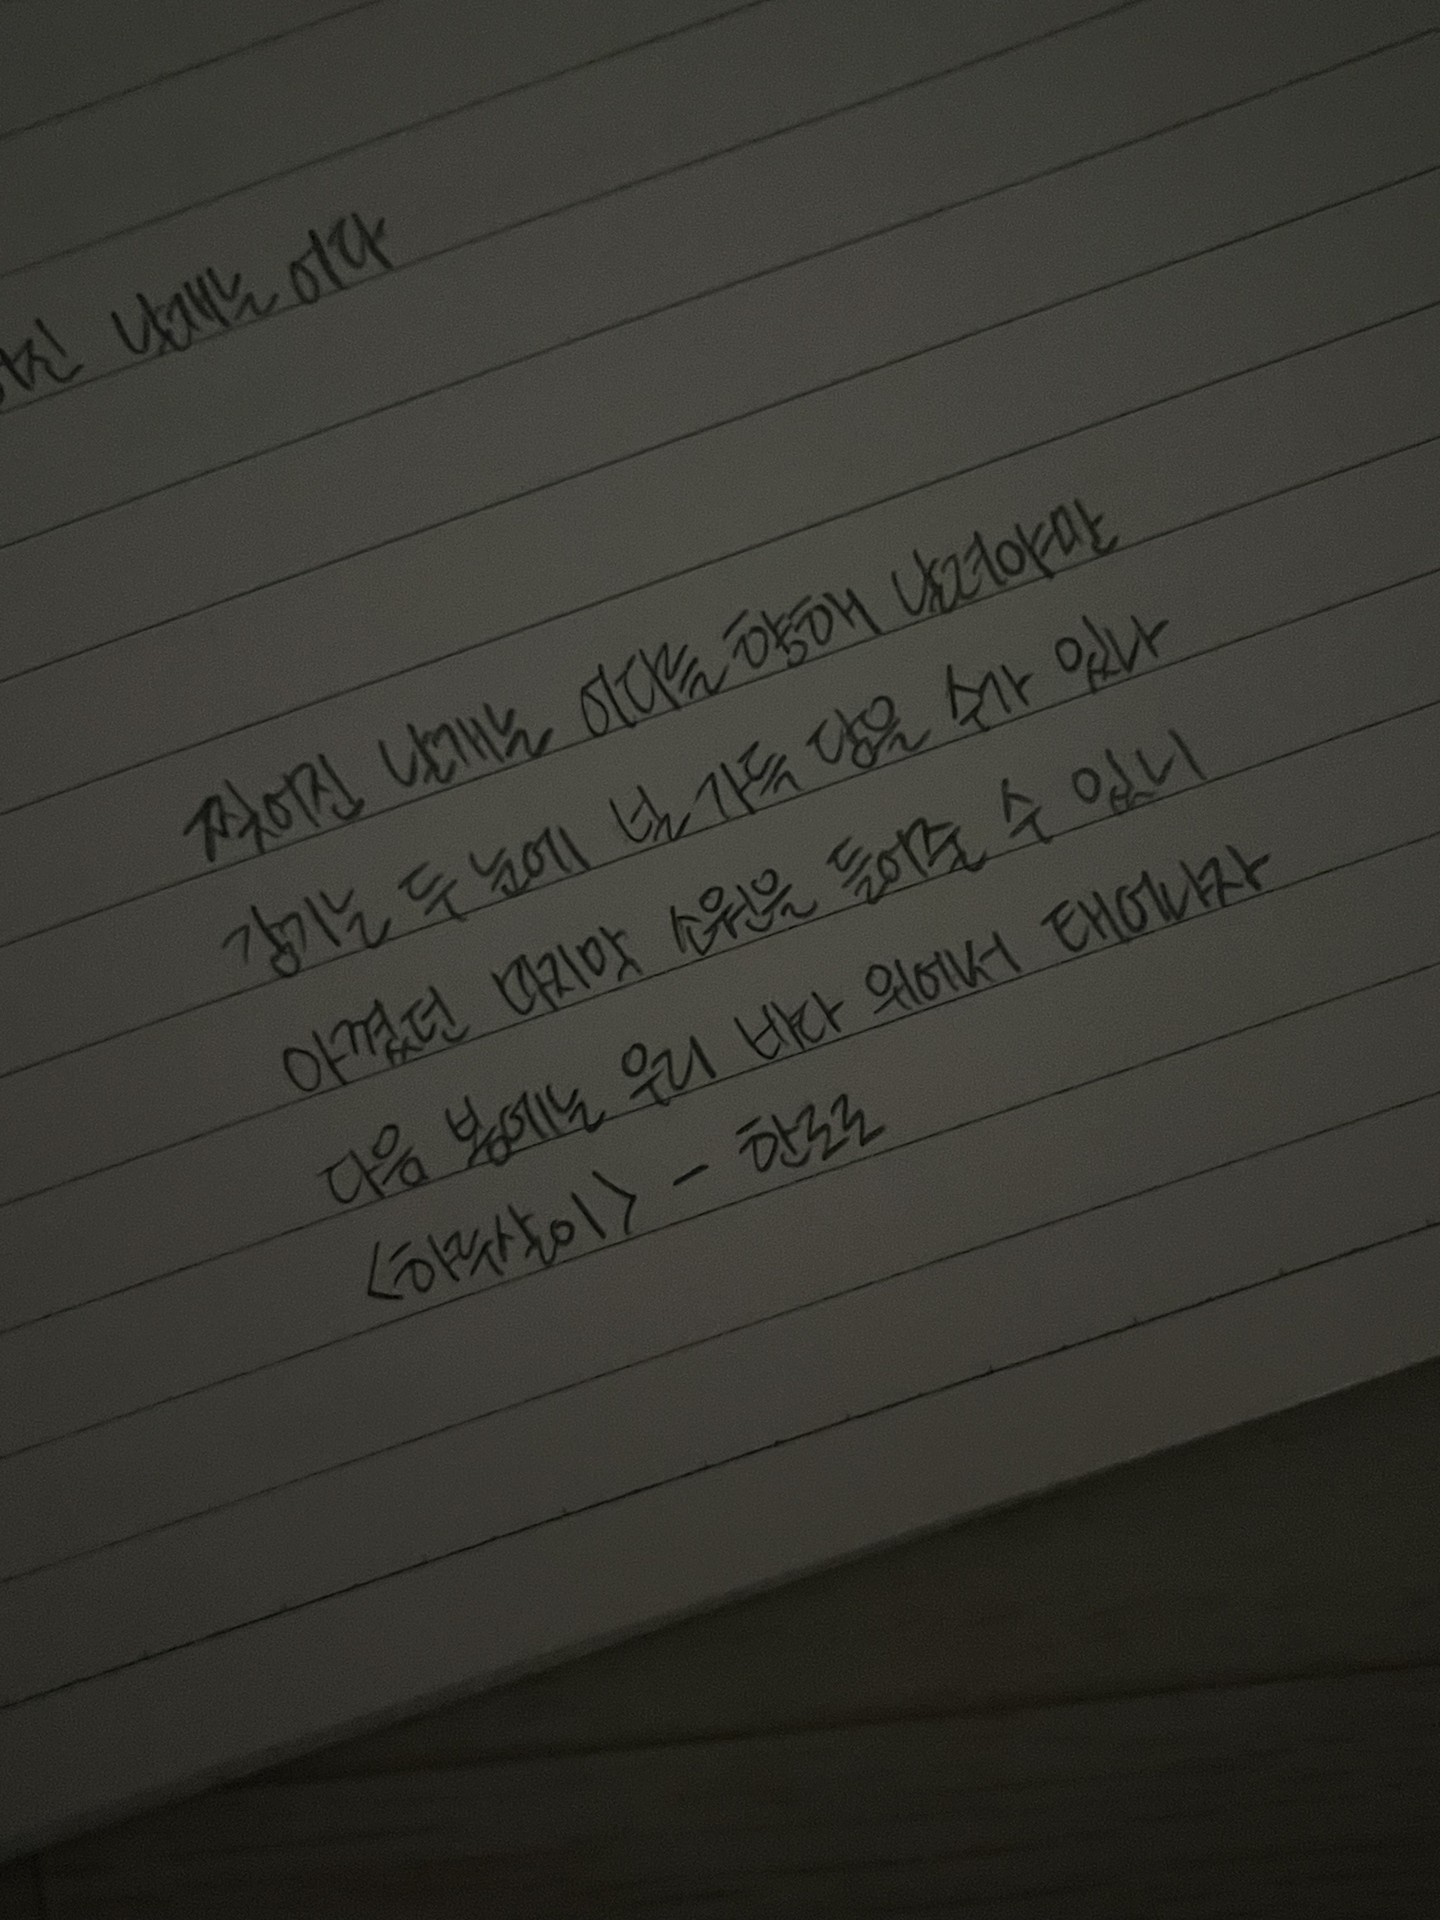 어진 날개는 어다
찢어진 날개는 어디를 향해 날려야만
감기는 두 눈에 널 가득 담을 수가 있나
아꼈던 마지막 소원을 들어줄 수 있니
다음 봄에는 우리 바다 위에서 태어나자
<하루살이> - 한로로